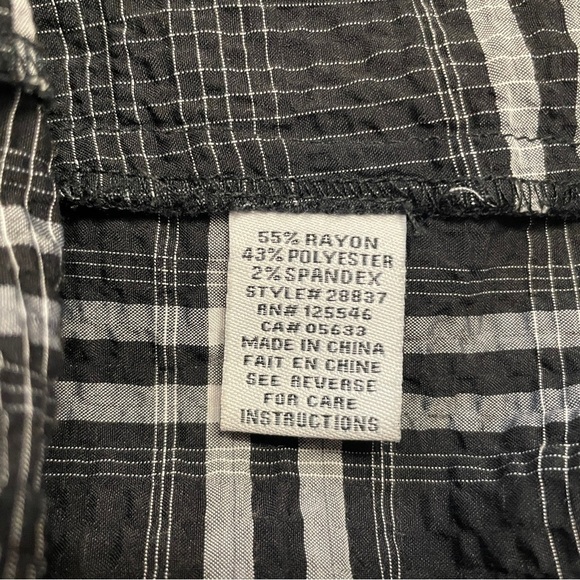 55% RAYON
43% POLYESTER
2% SPANDEX
STYLE# 28837
RN# 125546
CA# 05633
MADE IN CHINA
FAIT EN CHINE
SEE REVERSE
FOR CARE
INSTRUCTIONS